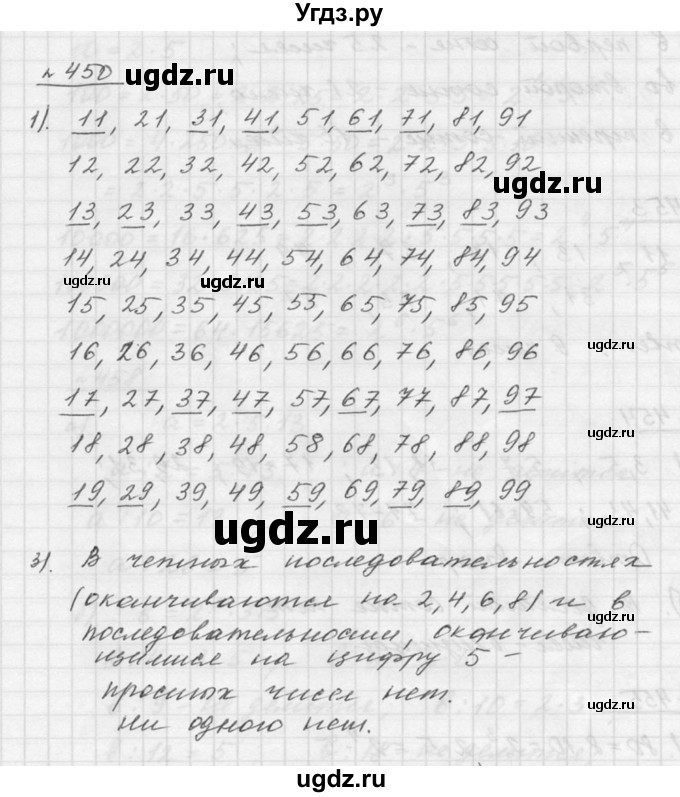 Угдз.ру
№ 450
ugdz.ru
1). 11, 21, 31, 41, 51, 61, 71, 81, 91
12, 22, 32, 42, 52, 62, 72, 82, 92
ugdz.ru
13, 23, 33, 43, 53, 63, 73, 83, 93
14, 24, 34, 44, 54, 64, 74, 84, 94
ugdz.ru
15, 25, 35, 45, 55, 65, 75, 85, 95
16, 26, 36, 46, 56, 66, 76, 86, 96
ugdz.ru
17, 27, 37, 47, 57, 67, 77, 87, 97
18, 28, 38, 48, 58, 68, 78, 88, 98
ugdz.ru
19, 29, 39, 49, 59, 69, 79, 89, 99
ugdz.ru
3). В четных последовательностях
(оканчиваются на 2, 4, 6, 8) и в
последовательносии, оканчиваю-
ugdz.ru
щимися на цифру 5 -
простых чисел нет.
ugdz.ru
ни одного нет.
ugdz.ru